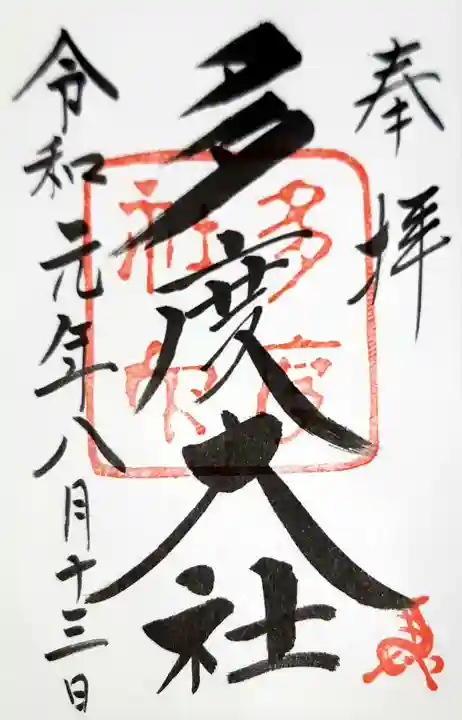 奉拝
多度大社
令和元年八月十三日
多度
社